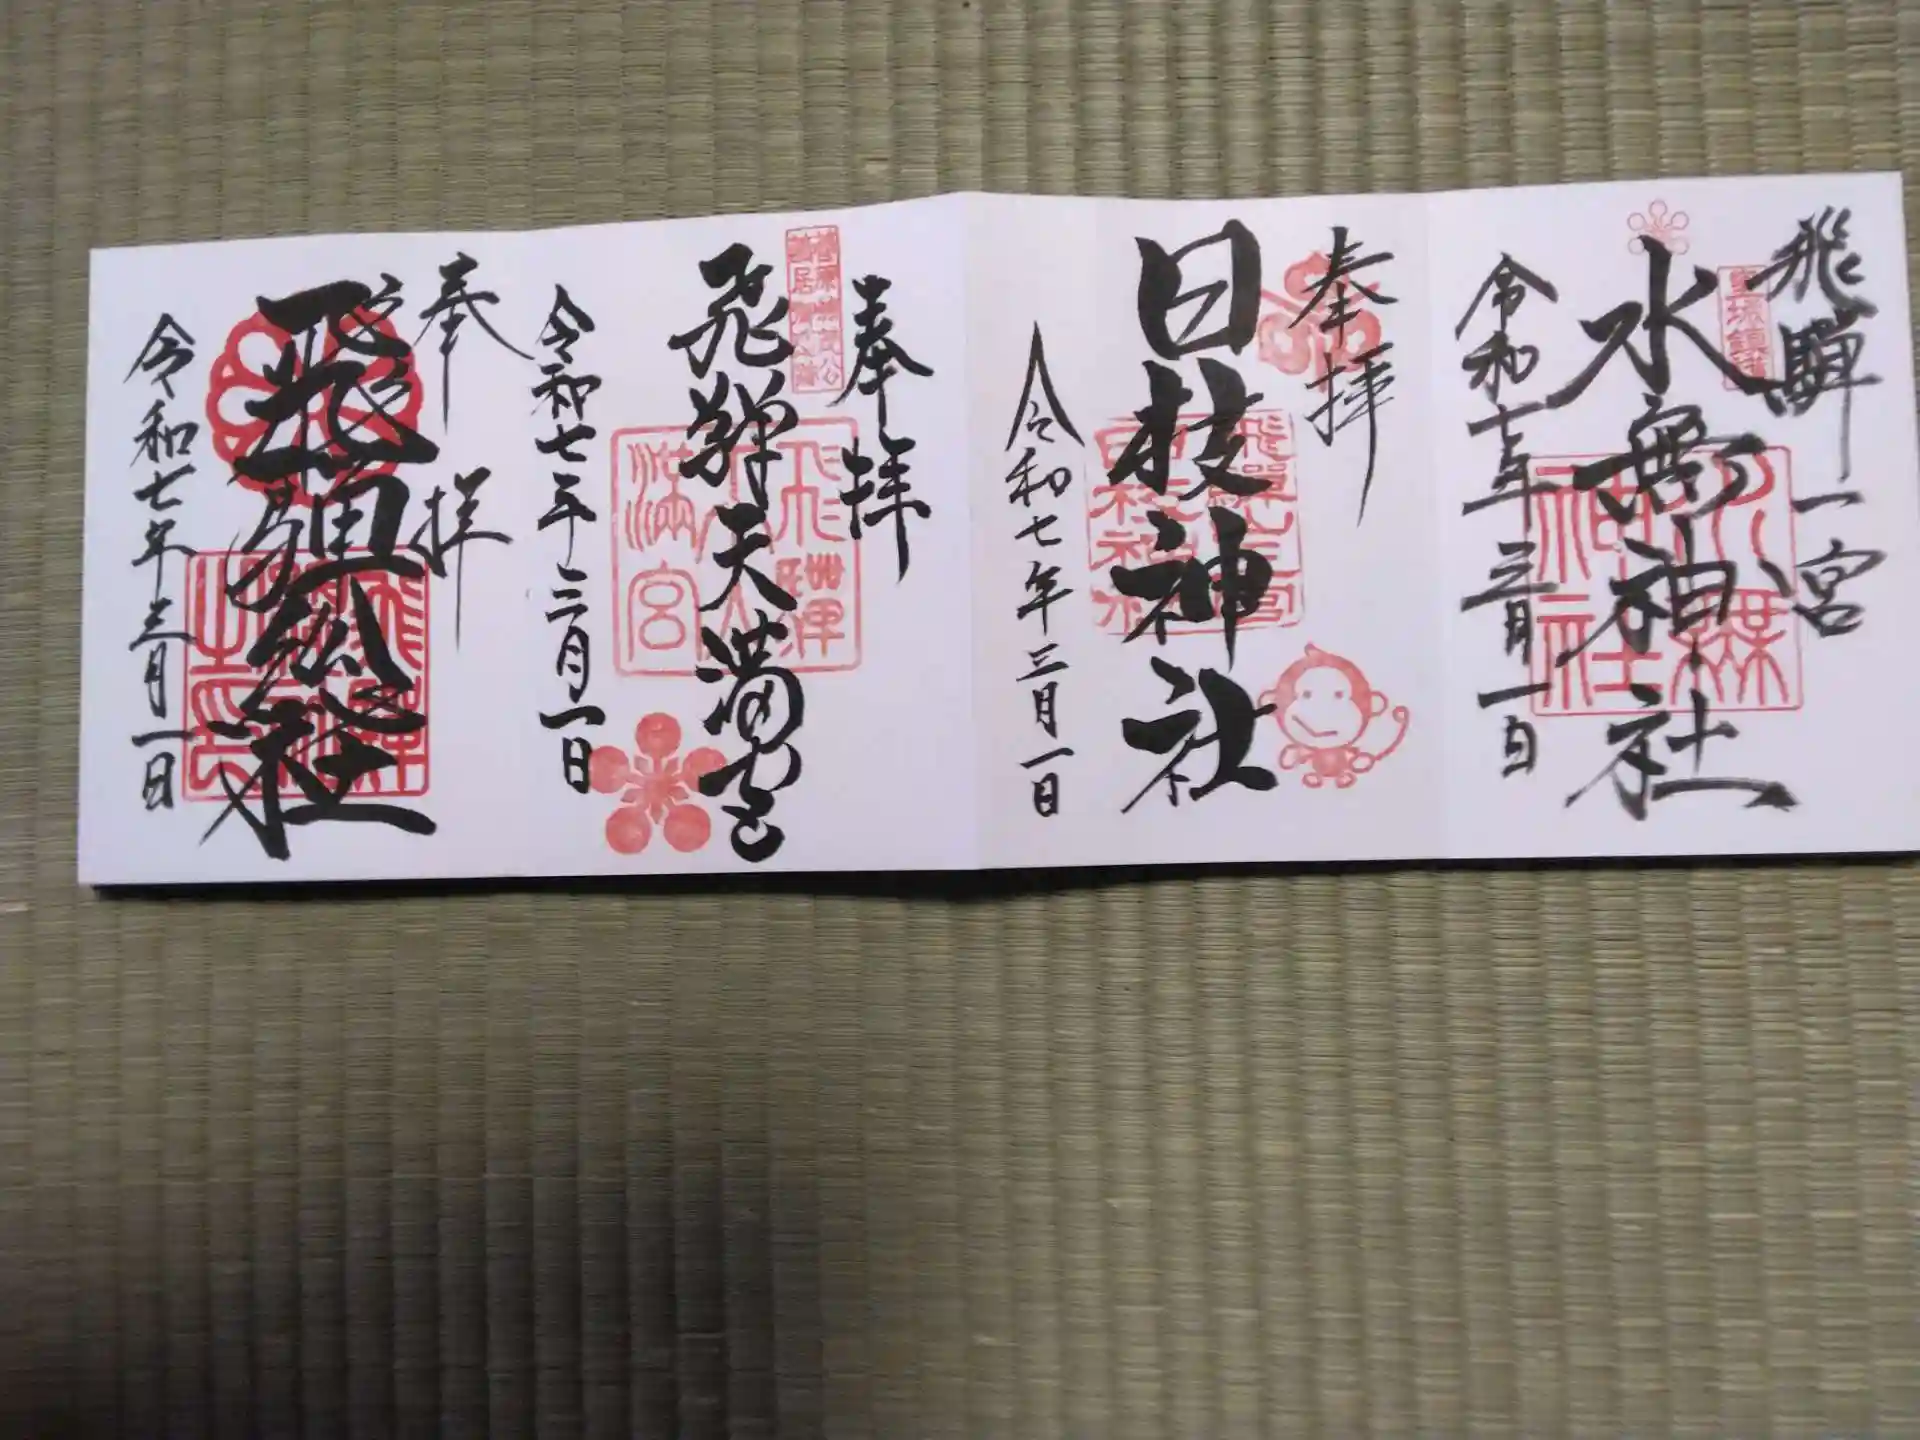 飛騨一宮
水無神社
令和七年三月一日
奉拝
日枝神社
令和七年三月一日
奉拝
飛騨天満宮
令和七年三月一日
飛騨
天満宮
奉拝
飛騨総社
令和七年三月一日